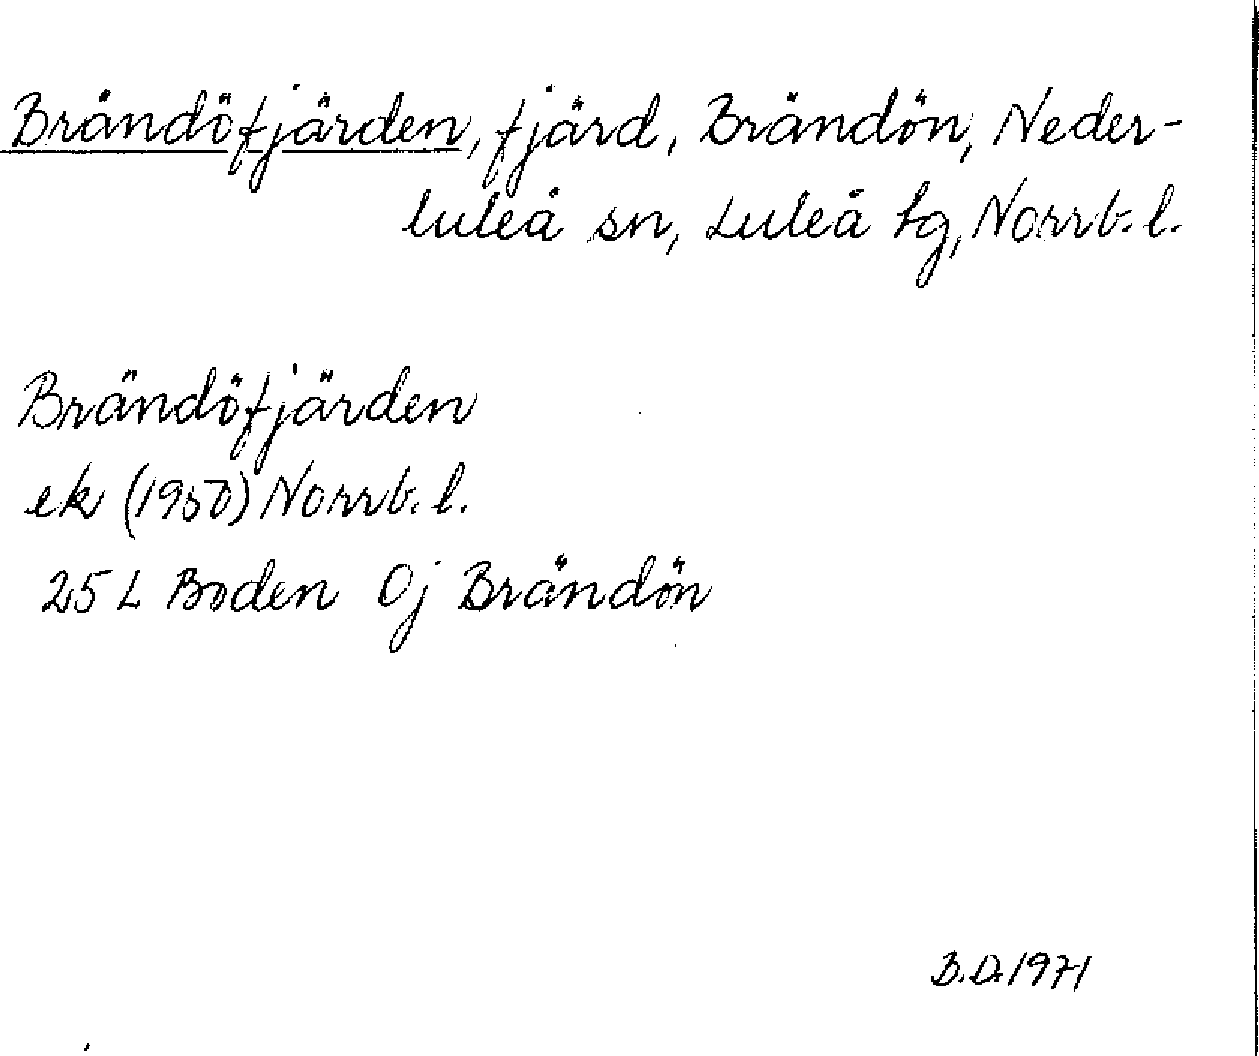 Brändöfjärden, fjärd, Brändön, Neder-
luleå sn, Luleå tg, Norrb. l.
Brändöfjärden
ek (1950) Norrb. l.
25 L Boden Oj Brändön
B.D. 1971